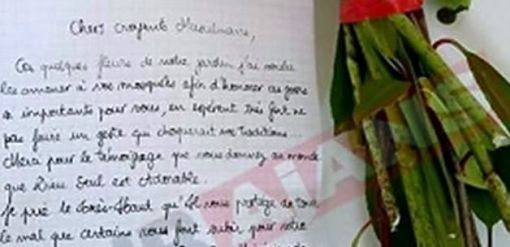 Chers croyants Musulmans,
Ces quelques fleurs de notre jardin j'ai voulu
les amener à vos mosquées afin d'honorer ce jour
si importants pour vous, en espérant très fort ne
pas faire un geste qui choquerait vos traditions...
Merci pour le témoignage que vous donnez au monde
que Dieu Seul est Adorable.
Je prie le Très-Haut qu'Il vous protège de tout
le mal que certains vous font subir pour votre